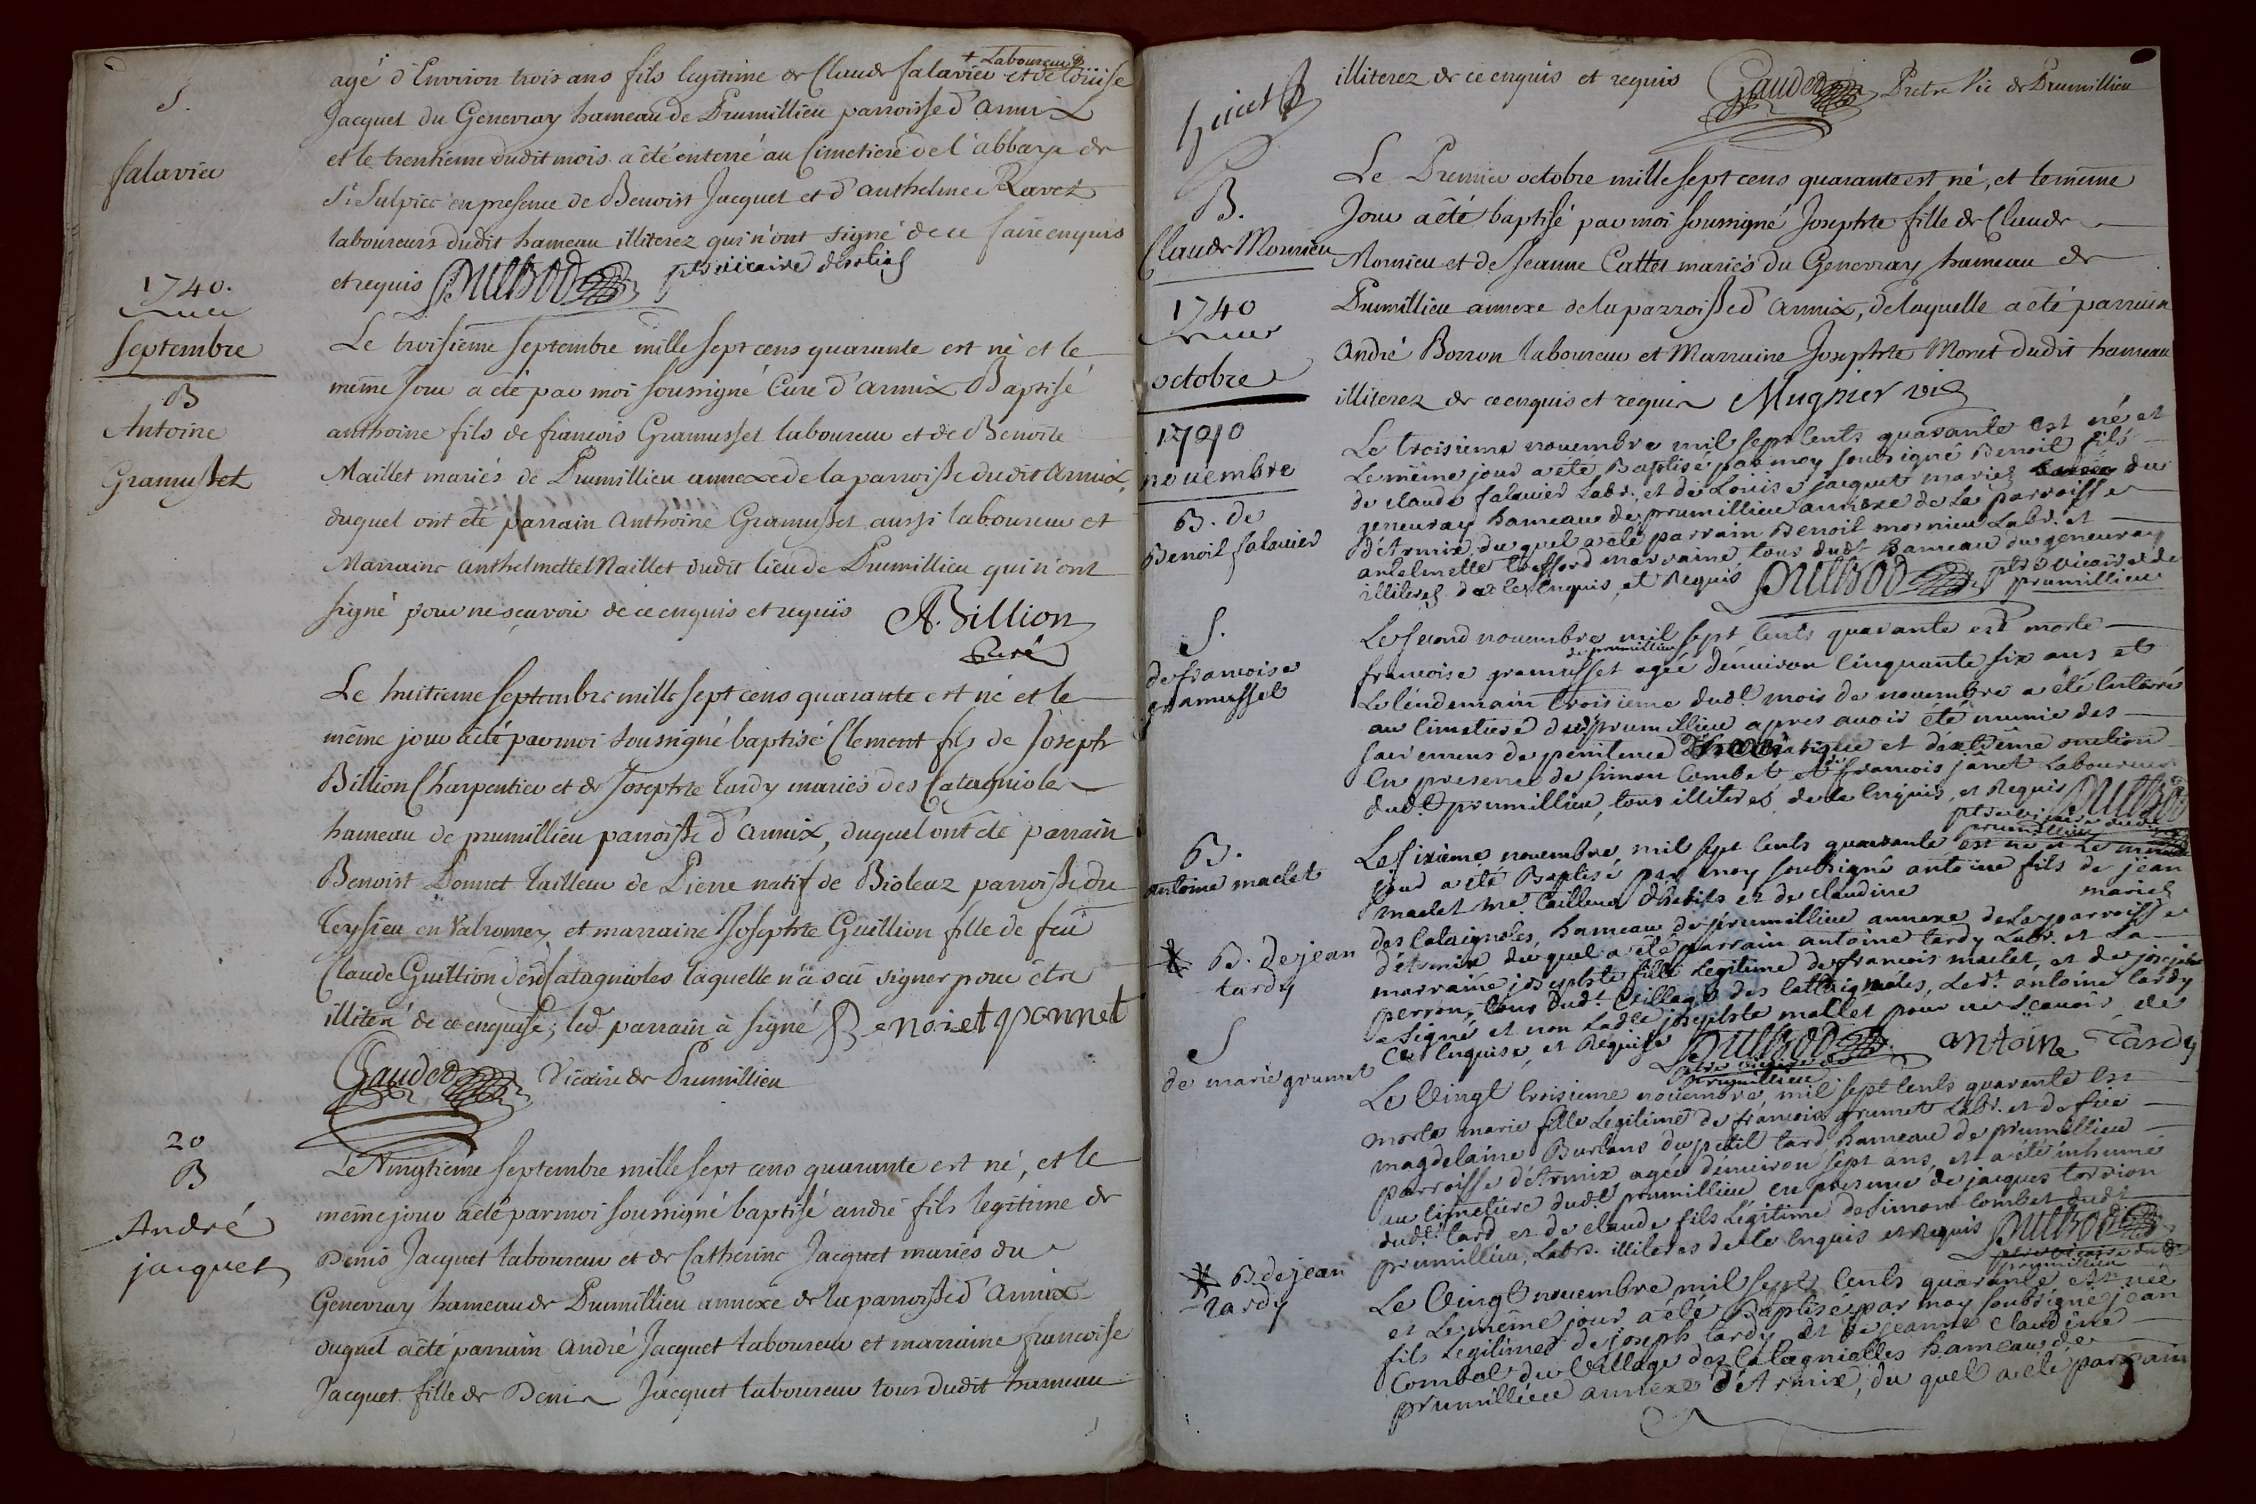 S.
falavier
agé d'Environ trois ans fils legitime de Claude falavier + Laboureur et de Loüise
Jacquet du Genevray hameau de Prumillieu parroisse d'armix
et le trentieme dudit mois a été enterré au Cimetiere de l'abbaye de
St. Sulpice en presence de Benoist Jacquet et d'anthelme Ravet
laboureurs dudit hameau illiterez qui n'ont signé de ce faire enquis
et requis
1740.
Septembre
B
Antoine
Gramusset
Le troisieme septembre mille sept cens quarante est né et le
même Jour a eté par moi soussigné Curé d'armix Baptisé
anthoine fils de francois Gramusset laboureur et de Benoite
Maillet mariés de Prumillieu annexe de la parroisse dudit armix,
duquel ont eté parrain anthoine Gramusset aussi laboureur et
Marraine anthelmette Maillet dudit lieu de Prumillieu qui n'ont
signé pour ne sçavoir de ce enquis et requis A. Billion
Curé
Le huitieme septembre mille sept cens quarante est né et le
même jour a eté par moi soussigné baptisé Clement fils de Joseph
Billion Charpentier et de Josephte tardy mariés des Catagnioles
hameau de prumillieu parroisse d'armix, duquel ont eté parrain
Benoist Ponnet tailleur de Pierre natif de Bioleaz parroisse du
teysieu en Valromey et marraine Josephte Guillion fille de feu
Claude Guillion desd. Catagnioles laquelle n'a sçû signer pour être
illiteré de ce enquise; led. parrain a signé Benoiet ponnet
Gaudet Vicaire de Prumillieu
20
B
André
jacquet
Le Vingtieme septembre mille sept cens quarante est né, et le
même jour a eté par moi soussigné baptisé andré fils legitime de
Denis Jacquet laboureur et de Catherine Jacquet mariés du
Genevray hameau de Prumillieu annexe de la parroisse d'armix
duquel a été parrain andré Jacquet laboureur et marraine francoise
Jacquet fille de Denis Jacquet laboureur tous dudit hameau
illiterez de ce enquis et requis Gaudet Pretre Vic de Prumillieu
B.
Claude Mornieu
1740
octobre
Le Premier octobre mille sept cens quarante est né, et le même
Jour a été baptisé par moi soussigné Josephte fille de Claude
Mornieu et de Jeanne Cattet mariés du Genevray hameau de
Prumillieu annexe de la parroisse d'armix, de laquelle a eté parrain
andré Borron laboureur et Marraine Josephte Monet dudit hameau
illiterez de ce enquis et requis Mugnier vic
1740
novembre
B. de
Benoit falavier
Le troisieme novembre mil sept cents quarante est né et
Le même jour a été Baptisé par moy soubsigné Benoit fils
de claude falavier Labr. et de Louise jacquet mariés du
genevray hameau de prumillieu annexe de La parroisse
d'Armix du quel a été parrain Benoit mornieu Labr. et
antelmette trefford marraine tous dudt. hameau du genevray
illiterés de ce Enquis, et Requis ptre vicaire de
prumillieu
S.
de francoise
gramusset
Le second novembre mil sept cents quarante est morte
francoise gramusset de prumillieu agée d'environ Cinquante six ans et
Le lendemain troisieme dudt. mois de novembre a été Enterré
au Cimetiere dudt prumillieu apres avoir été munie des
sacremens de penitence et d'extrême onction
En presence de simon Combet et de francois janet Laboureurs
dudt. prumillieu, tous illiterés de ce Enquis, et Requis
ptre vicaire dudt
prumillieu
B.
antoine maclet
Le sixieme novembre mil sept cents quarante est né et Le même
jour a été Baptisé par moy soubsigné antoine fils de jean
maclet me. tailleur d'habits et de claudine mariés
des Cataignoles, hameau de prumillieu annexe de La parroisse
d'Armix du quel a été parrain antoine tardy Labr. et La
marraine josephte fille Legitime de francois maclet, et de josephte
perron, tous dudt. Village des Cattaignoles, Ledt. antoine tardy
a signé et non Ladte josephte mallet pour ne sçavoir de
Ce Enquise, et Requise antoine Tardy
ptre vicaire de
prumillieu
* B. de jean
tardy
S
de marie grumet
Le Vingt troisieme novembre, mil sept cents quarante est
morte marie fille Legitime de francois grumet Labr. et de feüe
magdelaine Burlans du petit tard hameau de prumillieu
parroisse d'Armix agée d'environ sept ans, et a été inhumé
au Cimetiere dudt. prumillieu en presence de jacques torrion
dudt. tard et de claude fils Legitime de simon Combet dudt
prumillieu, Labrs. illiteres de ce Enquis et Requis
ptre vicaire dudt
prumillieu
* B. de jean
tardy
Le Vingt novembre mil sept cents quarante est né
et Le même jour a été Baptisé par moy soubsigné jean
fils Legitime de joseph tardy et de jeanne claudine
Combet du Village des Catagnielles hameau de
prumillieu annexe d'Armix, du quel a été parrain